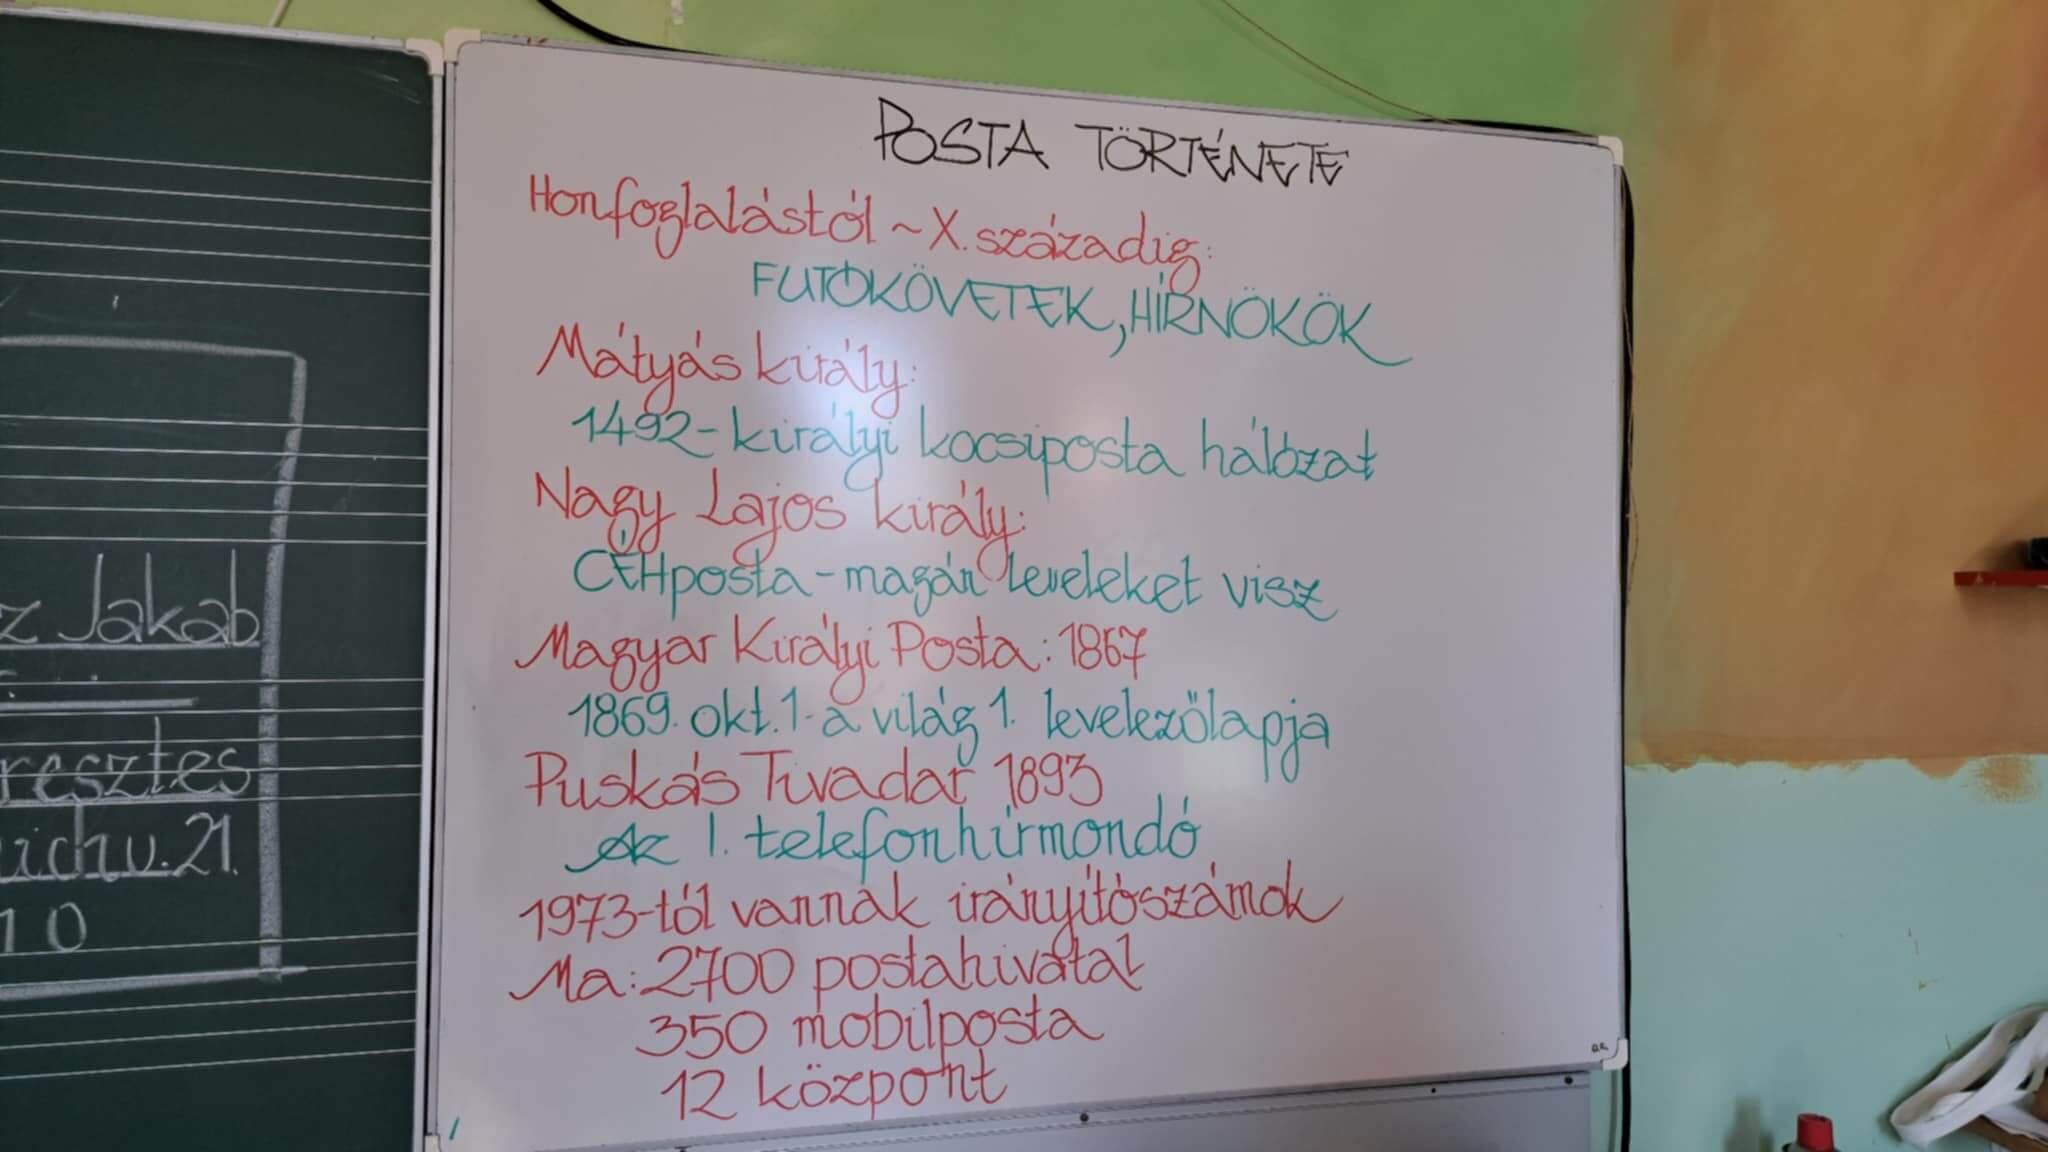 POSTA TÖRTÉNETE
Honfoglalástól ~ X. századig:
FUTÓKÖVETEK, HÍRNÖKÖK
Mátyás király:
1492 - királyi kocsiposta hálózat
Nagy Lajos király:
CÉHposta - magán leveleket visz
Magyar Királyi Posta: 1867
1869. okt. 1. - a világ 1. levelezőlapja
Puskás Tivadar 1893
Az 1. telefonhírmondó
1973-tól vannak irányítószámok
Ma: 2700 postahivatal
350 mobilposta
12 központ
z Jakab
resztes
u. 21.
10